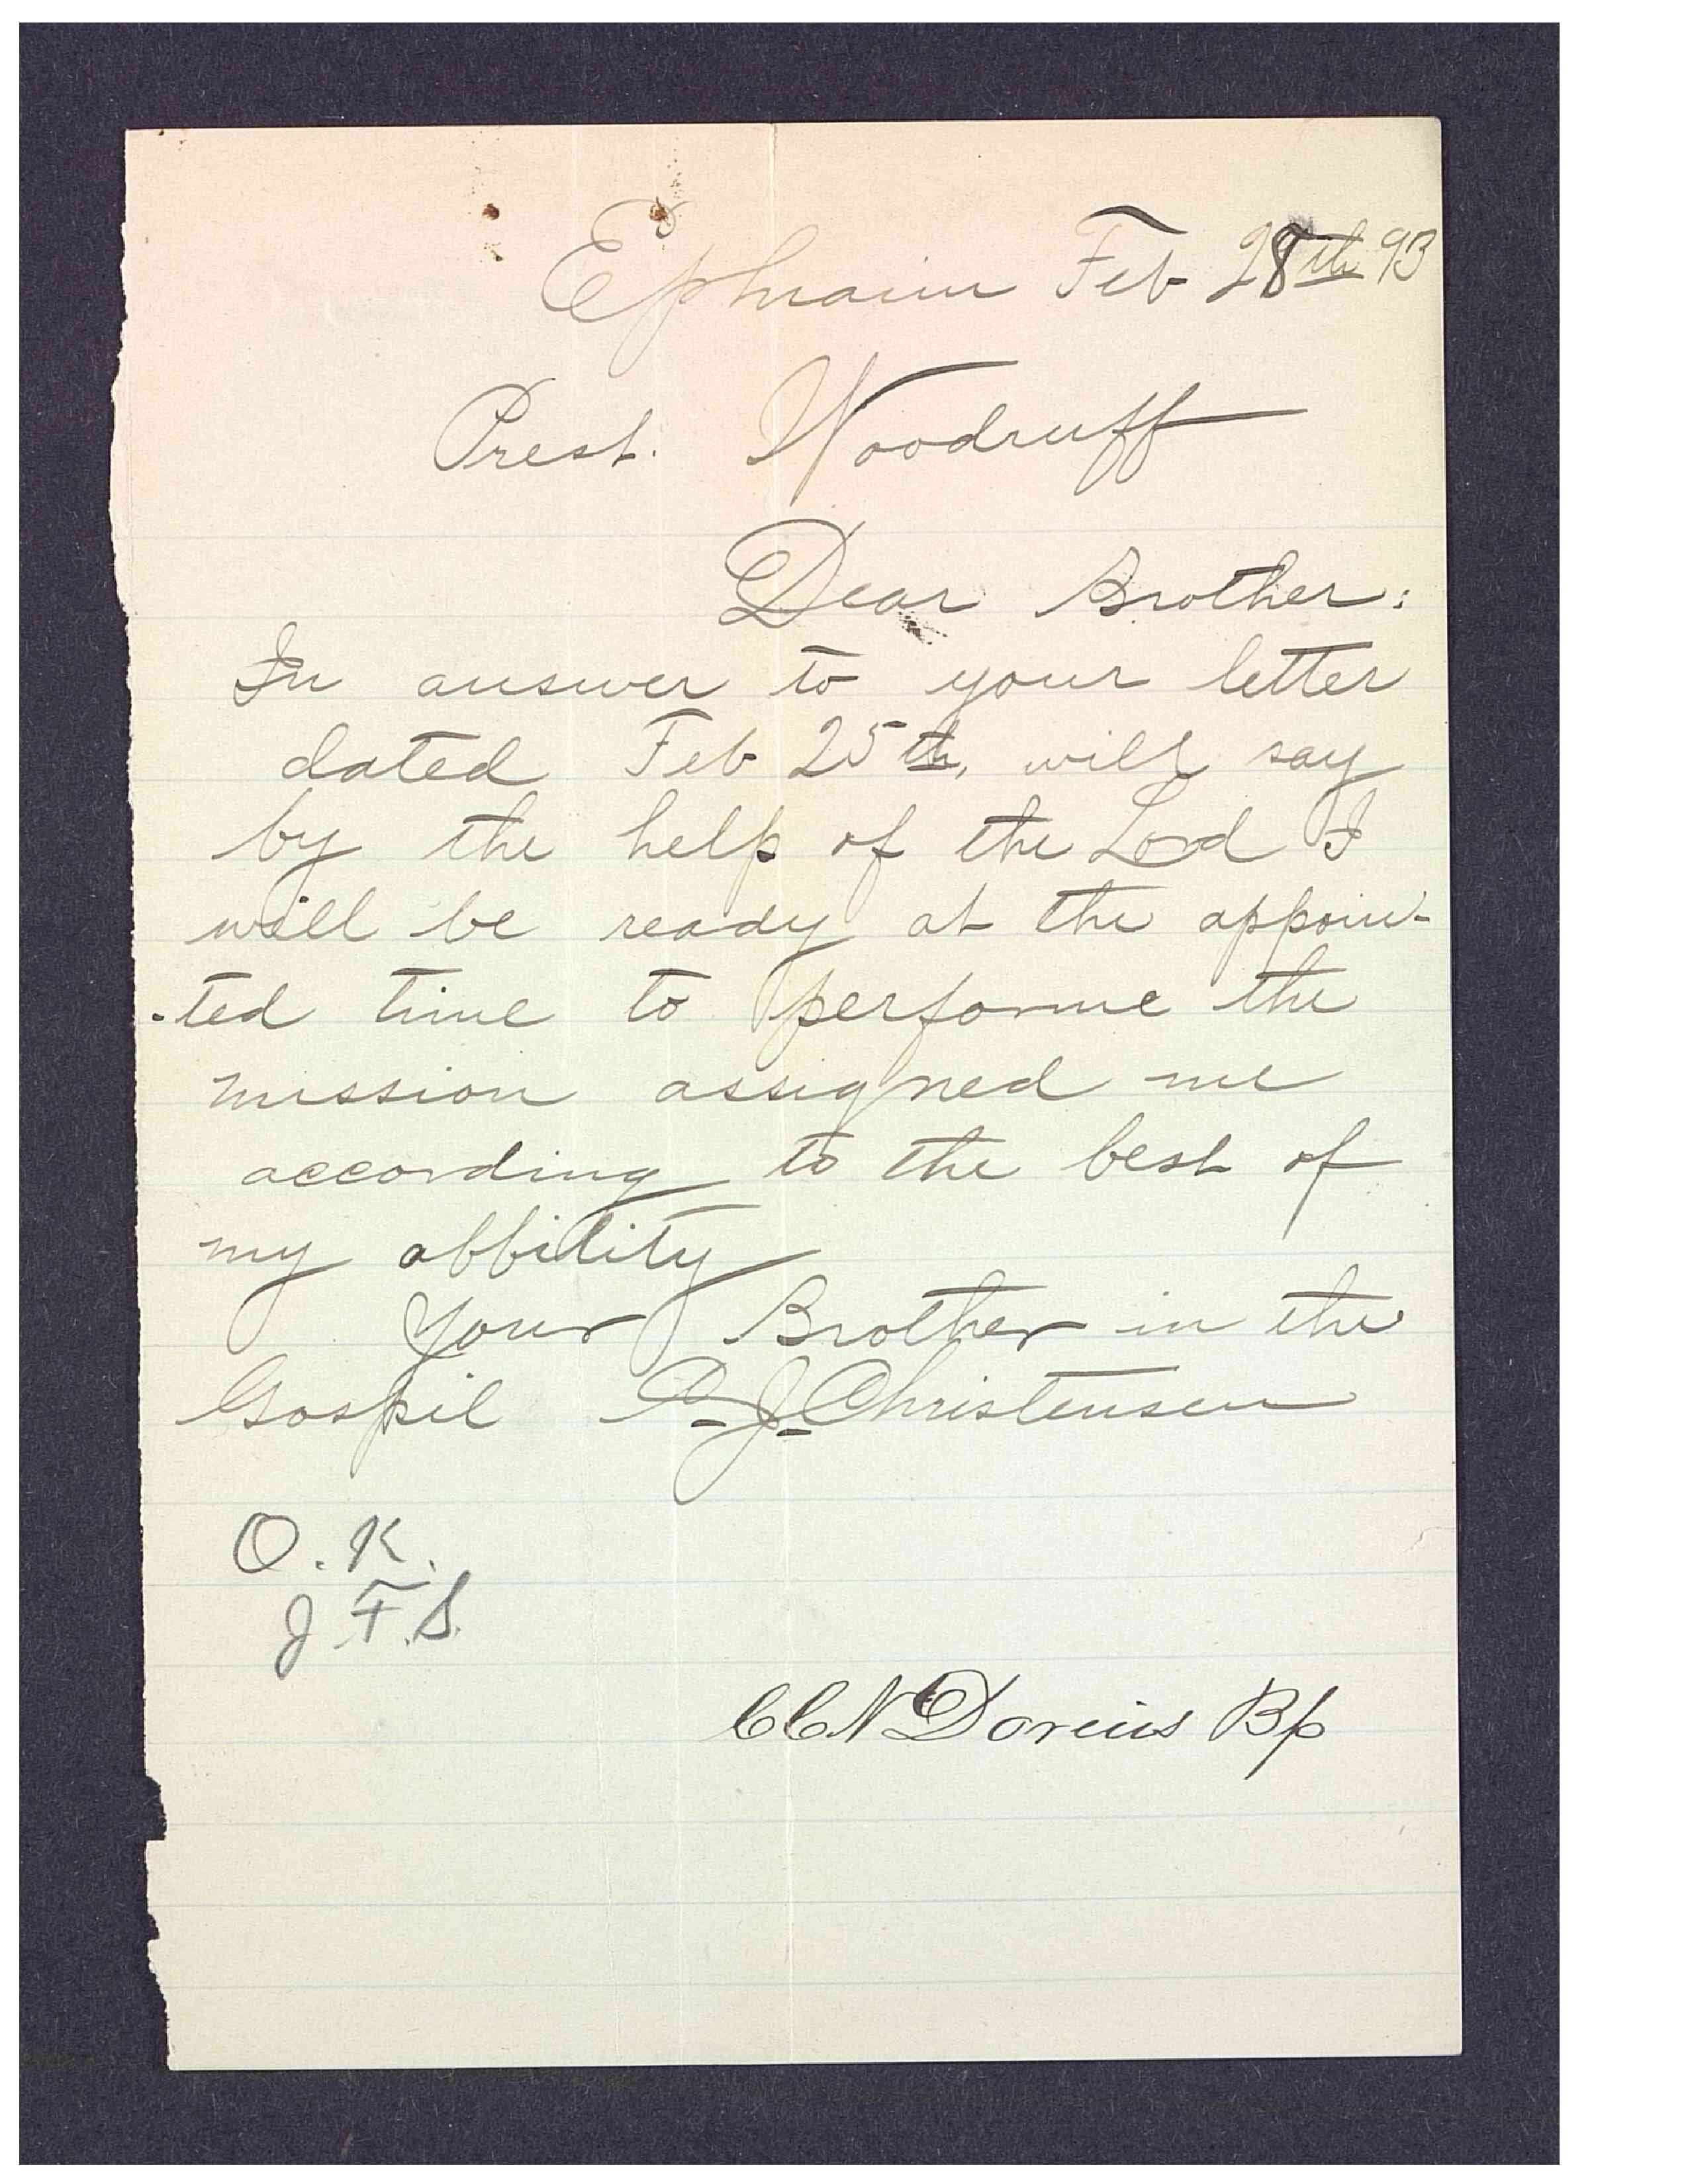 Ephraim Feb 28th 93
Prest. Woodruff
Dear Brother:
In answer to your letter
dated Feb 25th, will say
by the help of the Lord I
will be ready at the appoin-
-ted time to performe the
mission assigned me
according to the best of
my abbility
Your Brother in the
Gospil P. J. Christensen
O. K.
J. F. S.
CCN Dorius Bp